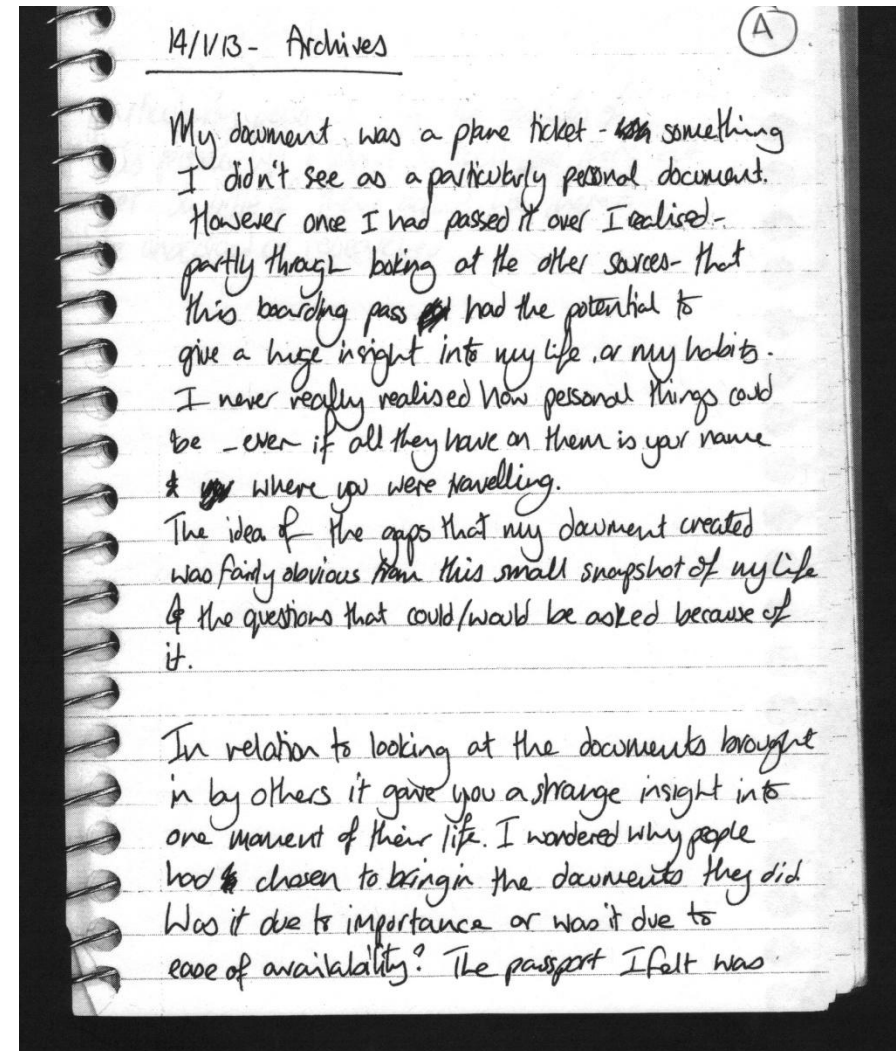 14/1/13 - Archives
A
My document was a plane ticket - something
I didn't see as a particularly personal document.
However once I had passed it over I realised -
partly through looking at the other sources - that
this boarding pass had the potential to
give a huge insight into my life, or my habits.
I never really realised how personal things could
be - even if all they have on them is your name
& where you were travelling.
The idea of the gaps that my document created
was fairly obvious from this small snapshot of my life
& the questions that could/would be asked because of
it.
In relation to looking at the documents brought
in by others it gave you a strange insight into
one moment of their life. I wondered why people
had chosen to bring in the documents they did
Was it due to importance or was it due to
ease of availability? The passport I felt was